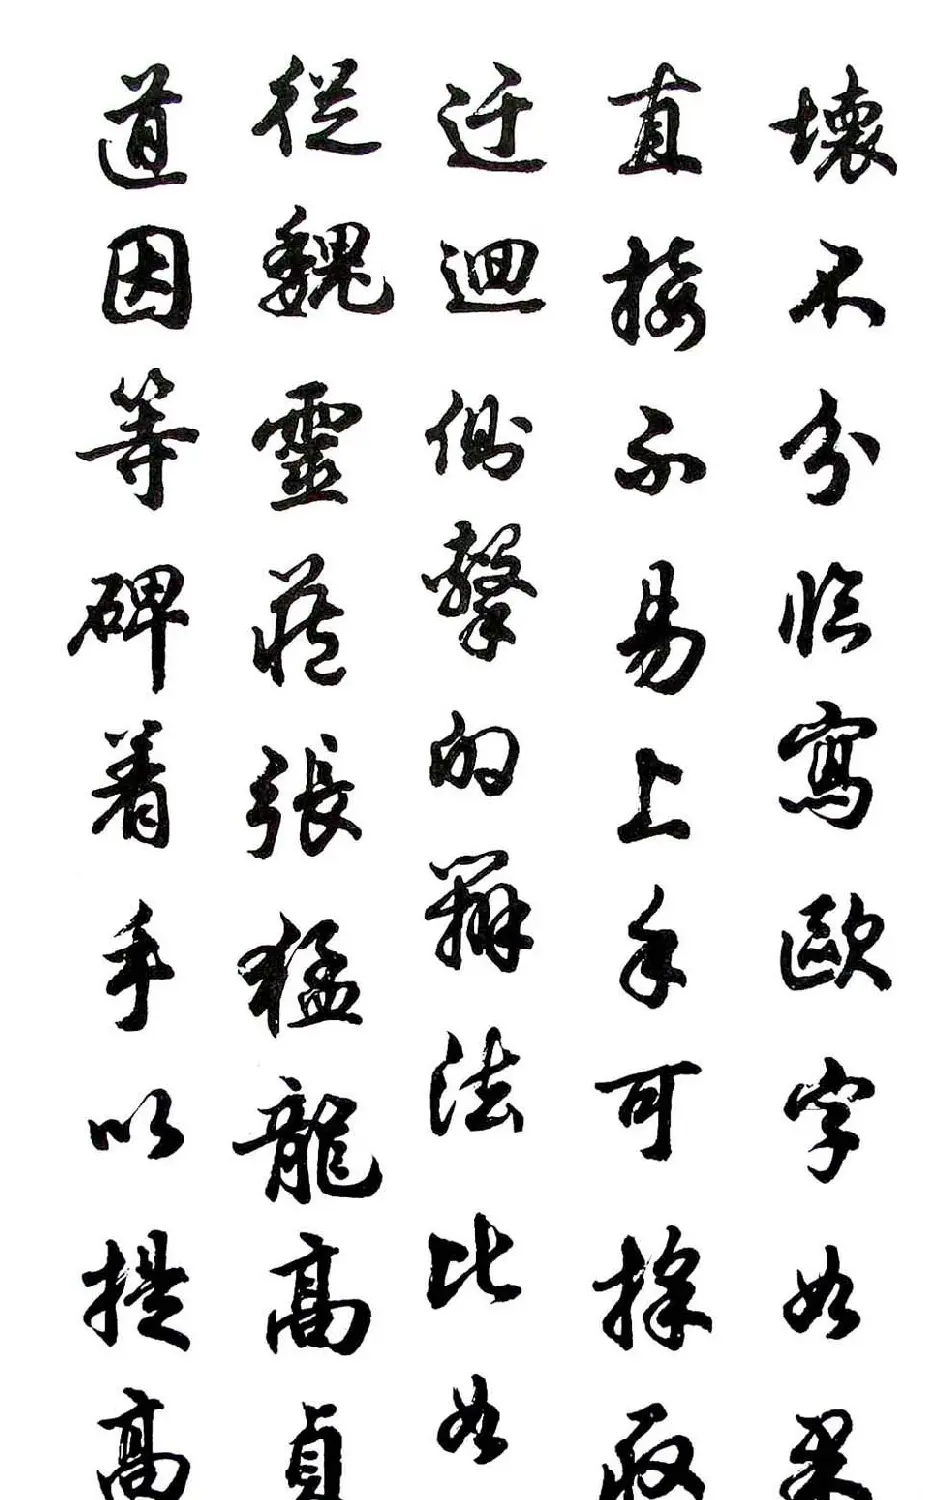 壞不分临寫歐字如果
直接不易上手可採取
迂迴側擊的辦法比如
從魏靈蔵張猛龍高貞
道因等碑着手以提高